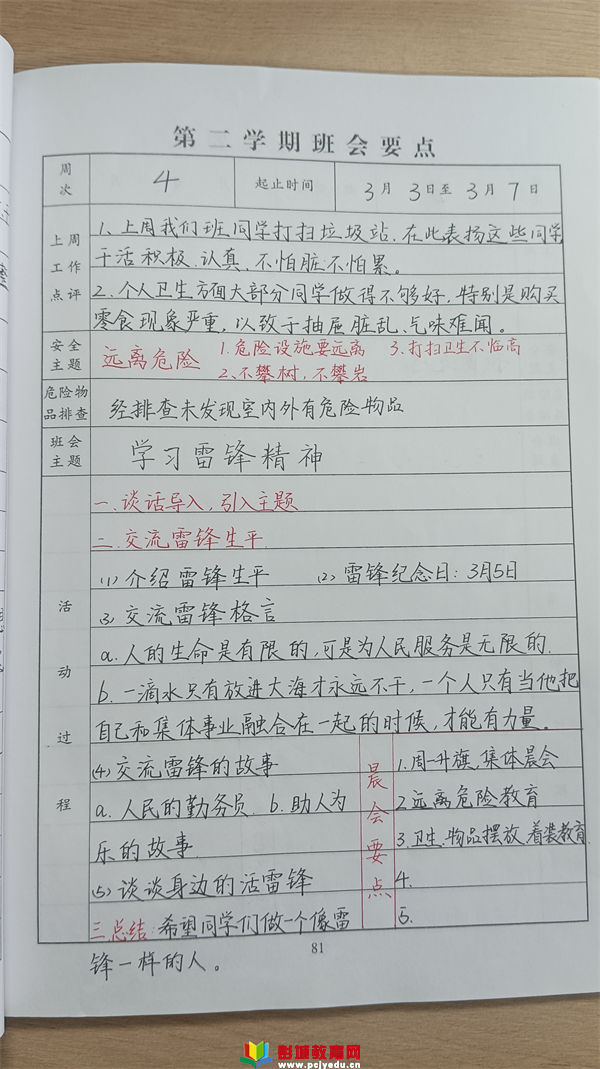 第二学期班会要点
周次 4 起止时间 3月3日至3月7日
上周工作点评
1、上周我们班同学打扫垃圾站,在此表扬这些同学
干活积极、认真,不怕脏不怕累。
2、个人卫生方面大部分同学做得不够好,特别是购买
零食现象严重,以致于抽屉脏乱、气味难闻。
安全主题 远离危险 1.危险设施要远离 3.打扫卫生不临高
2、不攀树,不攀岩
危险物品排查 经排查未发现室内外有危险物品
班会主题 学习雷锋精神
活动过程
一、谈话导入,引入主题
二、交流雷锋生平
(1)介绍雷锋生平 (2)雷锋纪念日:3月5日
(3)交流雷锋格言
a.人的生命是有限的,可是为人民服务是无限的.
b.一滴水只有放进大海才永远不干,一个人只有当他把
自己和集体事业融合在一起的时候,才能有力量。
(4)交流雷锋的故事
a.人民的勤务员 b.助人为
乐的故事
(5)谈谈身边的活雷锋
三.总结:希望同学们做一个像雷
锋一样的人。
晨会要点
1.周一升旗,集体晨会
2.远离危险教育
3.卫生、物品摆放、着装教育
4.
5.
81
彭城教育网
www.pcjyedu.cn